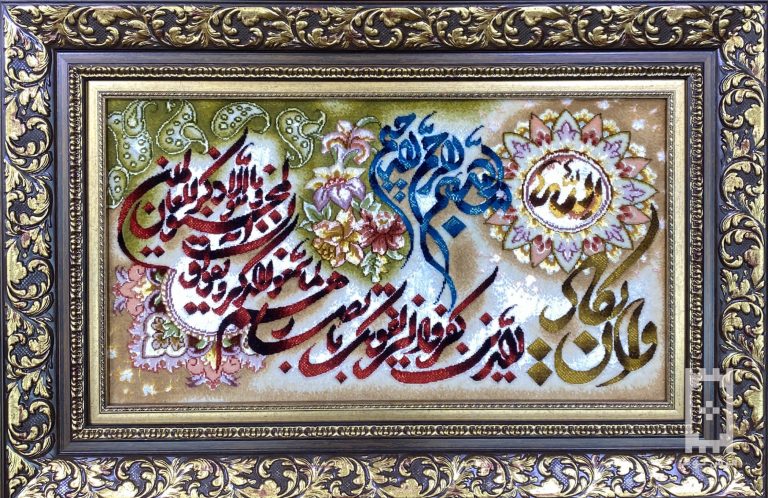 الله
بسم الله الرحمن الرحیم
وان یکاد
الذین کفروا لیزلقونک بابصارهم
لما سمعوا الذکر و یقولون
انه لمجنون
و ما هو الا ذکر للعالمین